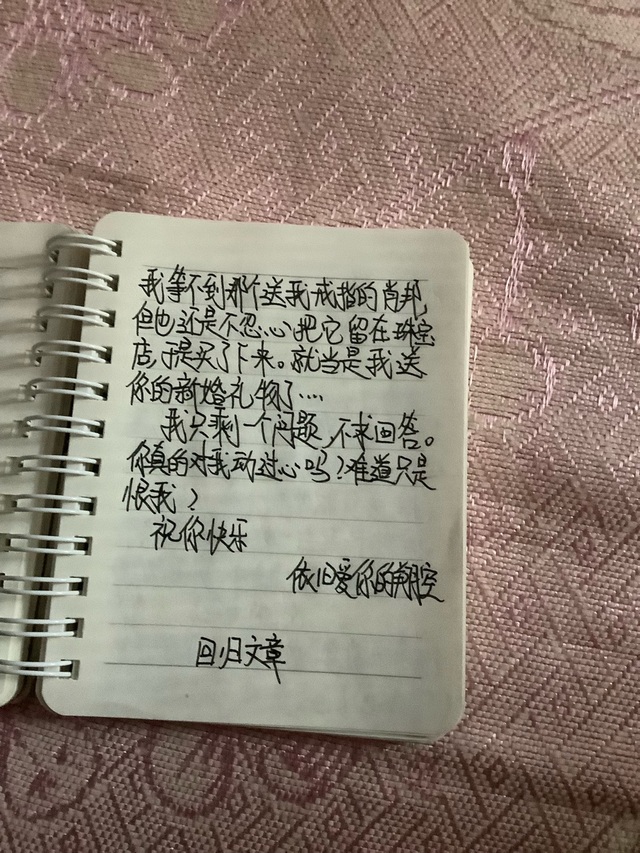 我等不到那个送我戒指的肖邦,
但也还是不忍心把它留在珠宝
店,于是买了下来。就当是我送
你的新婚礼物了....
我只剩一个问题,不求回答。
你真的对我动过心吗?难道只是
恨我?
祝你快乐
依旧爱你的
回归文章